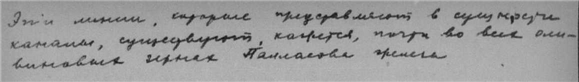 Эти линии, которые представляют в сущности
каналы, существуют, кажется, почти во всех оли-
виновых зернах Палласова железа